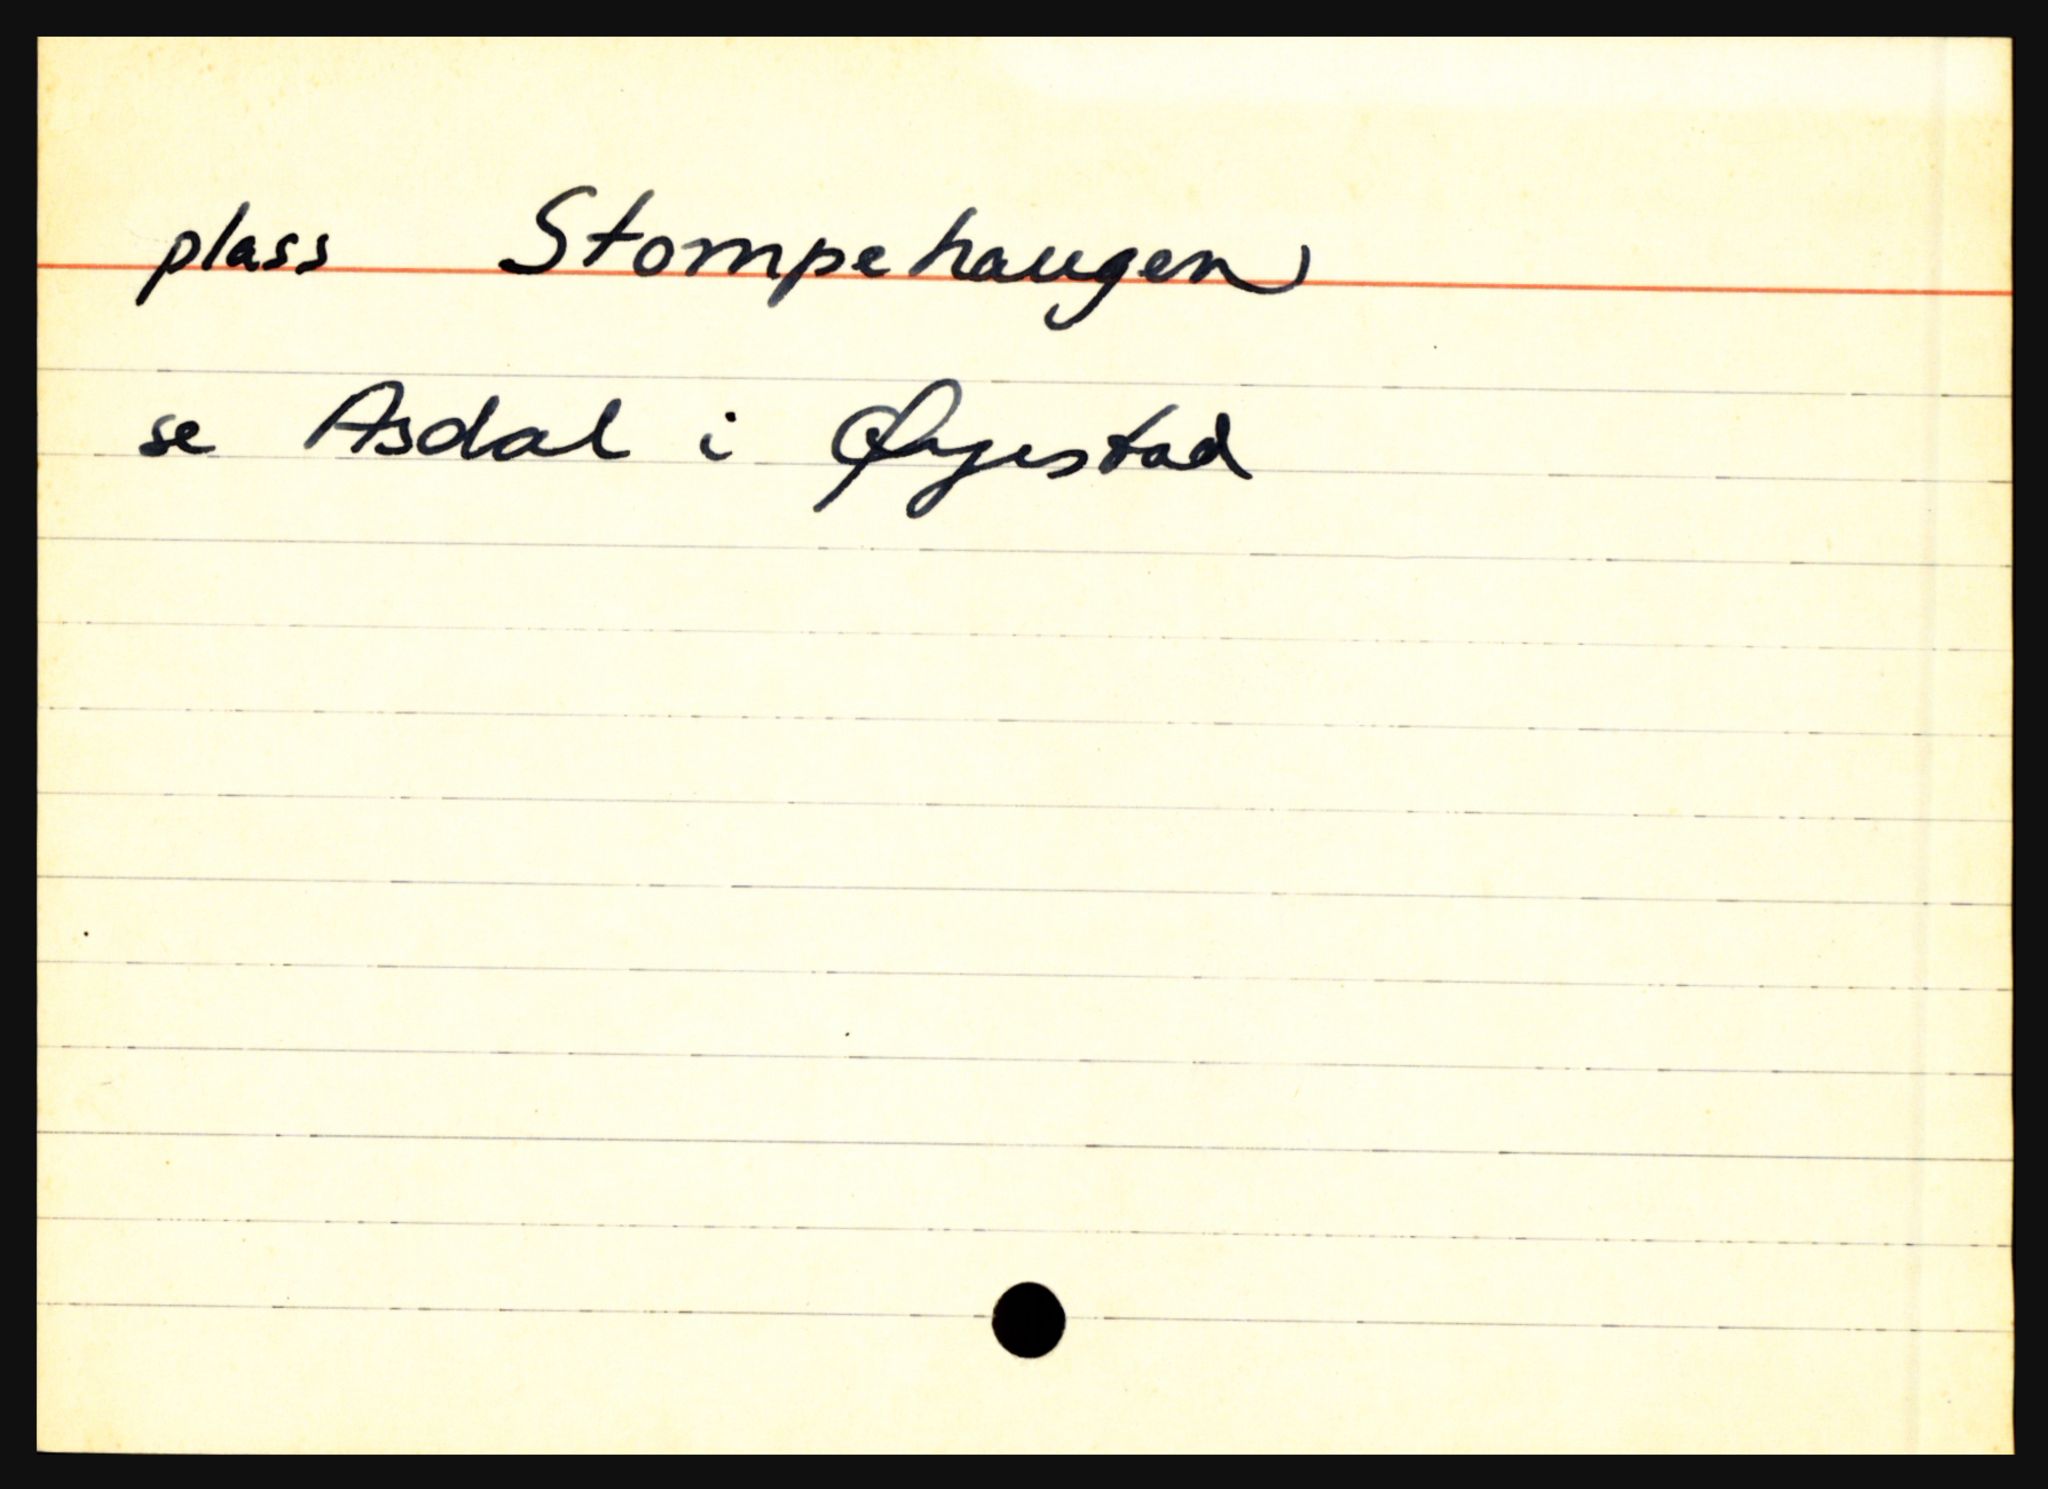 plass Stompehaugen
se Asdal i Øyestad